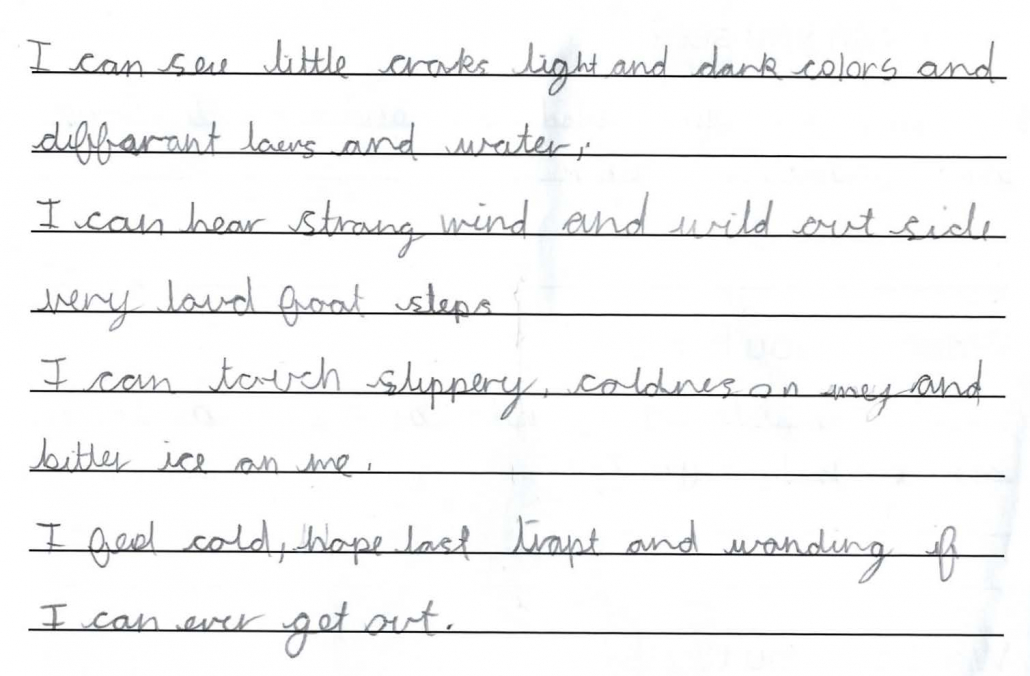 I can see little craks light and dark colors and
diffarant laers and water,.
I can hear strong wind and wild out side
very loud foot steps
I can touch slippery, coldnes on mey and
bitter ice on me.
I feel cold, hope last trapt and wonding if
I can ever get out.